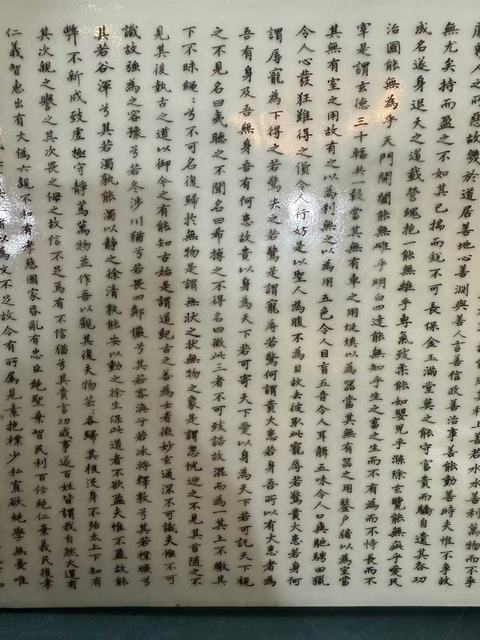 利上善若水水善利萬物而不爭
人之所惡故幾於道居善地心善淵與善人言善信政善治事善能動善時夫惟不爭故
無尤矣持而盈之不如其已揣而銳不可長保金玉滿堂莫之能守富貴而驕自遺其咎功
成名遂身退天之道載營魄抱一能無離乎專氣致柔能如嬰兒乎滌除玄覽能無疵乎愛民
治國能無為乎天門開闔能無雌乎明白四達能無知乎生之畜之生而不有為而不恃長而不
宰是謂玄德三十輻共一轂當其無有車之用埏埴以為器當其無有器之用鑿戶牖以為室當
其無有室之用故有之以為利無之以為用五色令人目盲五音令人耳聾五味令人口爽馳騁田獵
令人心發狂難得之貨令人行妨是以聖人為腹不為目故去彼取此寵辱若驚貴大患若身何
謂辱寵為下得之若驚失之若驚是謂寵辱若驚何謂貴大患若身吾所以有大患者為
吾有身及吾無身吾有何患故貴以身為天下若可寄天下愛以身為天下若可託天下視
之不見名曰夷聽之不聞名曰希搏之不得名曰微此三者不可致詰故混而為一其上不皦其
下不昧繩繩兮不可名復歸於無物是謂無狀之狀無物之象是謂恍惚迎之不見其首隨之不
見其後執古之道以御今之有能知古始是謂道紀古之善為士者微妙玄通深不可識夫惟不可
識故強為之容豫兮若冬涉川猶兮若畏四鄰儼兮其若客渙乎若冰將釋敦兮其若樸曠兮
其若谷渾兮其若濁孰能濁以靜之徐清孰能安以動之徐生保此道者不欲盈夫惟不盈故能
弊不新成致虛極守靜篤萬物並作吾以觀其復夫物芸芸各歸其根沒身不殆太上下知有
其次親之譽之其次畏之侮之故信不足焉有不信猶兮其貴言功成事遂百姓皆謂我自然大道有
仁義智惠出有大偽六親不和有孝慈國家昏亂有忠臣絕聖棄智民利百倍絕仁棄義民復孝
以為文不足故令有所屬見素抱樸少私寡欲絕學無憂唯